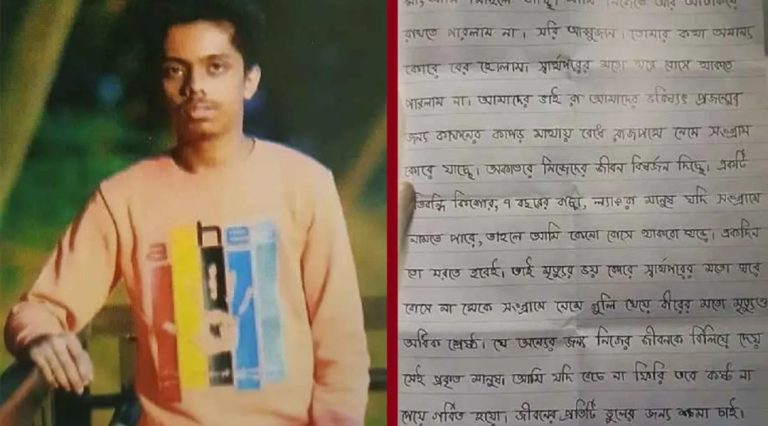 মা, আমি মিছিলে যাচ্ছি। আমি নিজেকে আর আটকিয়ে
রাখতে পারলাম না। সরি আব্বুজান। তোমার কথা অমান্য
কোরে বের হোলাম। স্বার্থপরের মতো ঘরে বোসে থাকতে
পারলাম না। আমাদের ভাই রা আমাদের ভবিষ্যৎ প্রজন্মের
জন্য কাফনের কাপড় মাথায় বেঁধে রাজপথে নেমে সংগ্রাম
কোরে যাচ্ছে। অকাতরে নিজেদের জীবন বিসর্জন দিচ্ছে। একটি
প্রতিবন্ধি কিশোর, ৭ বছরের বাচ্চা, ল্যাংড়া মানুষ যদি সংগ্রামে
নামতে পারে, তাহলে আমি কেনো বোসে থাকবো ঘরে। একদিন
তো মরতে হবেই। তাই মৃত্যুর ভয় কোরে স্বার্থপরের মতো ঘরে
বোসে না থেকে সংগ্রামে নেমে গুলি খেয়ে বীরের মতো মৃত্যুও
অধিক শ্রেষ্ঠ। যে অন্যের জন্য নিজের জীবনকে বিলিয়ে দেয়
সেই প্রকৃত মানুষ। আমি যদি বেচে না ফিরি তবে কষ্ট না
পেয়ে গর্বিত হয়ো। জীবনের প্রতিটি ভুলের জন্য ক্ষমা চাই।